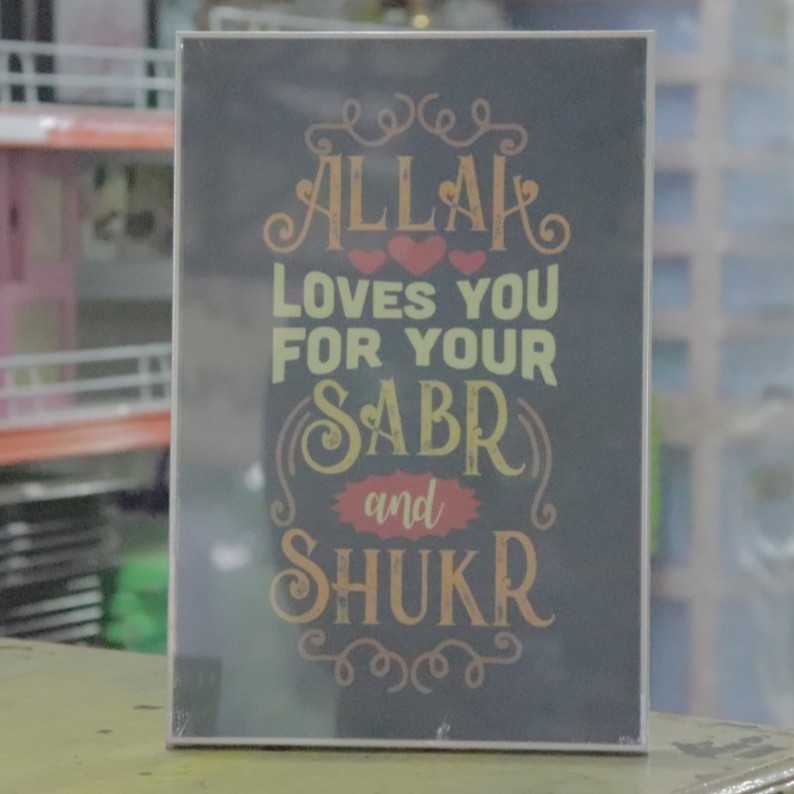 ALLAH
LOVES YOU
FOR YOUR
SABR
and
SHUKR